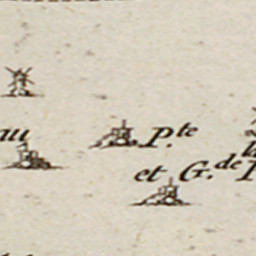 au P.te
et G.de